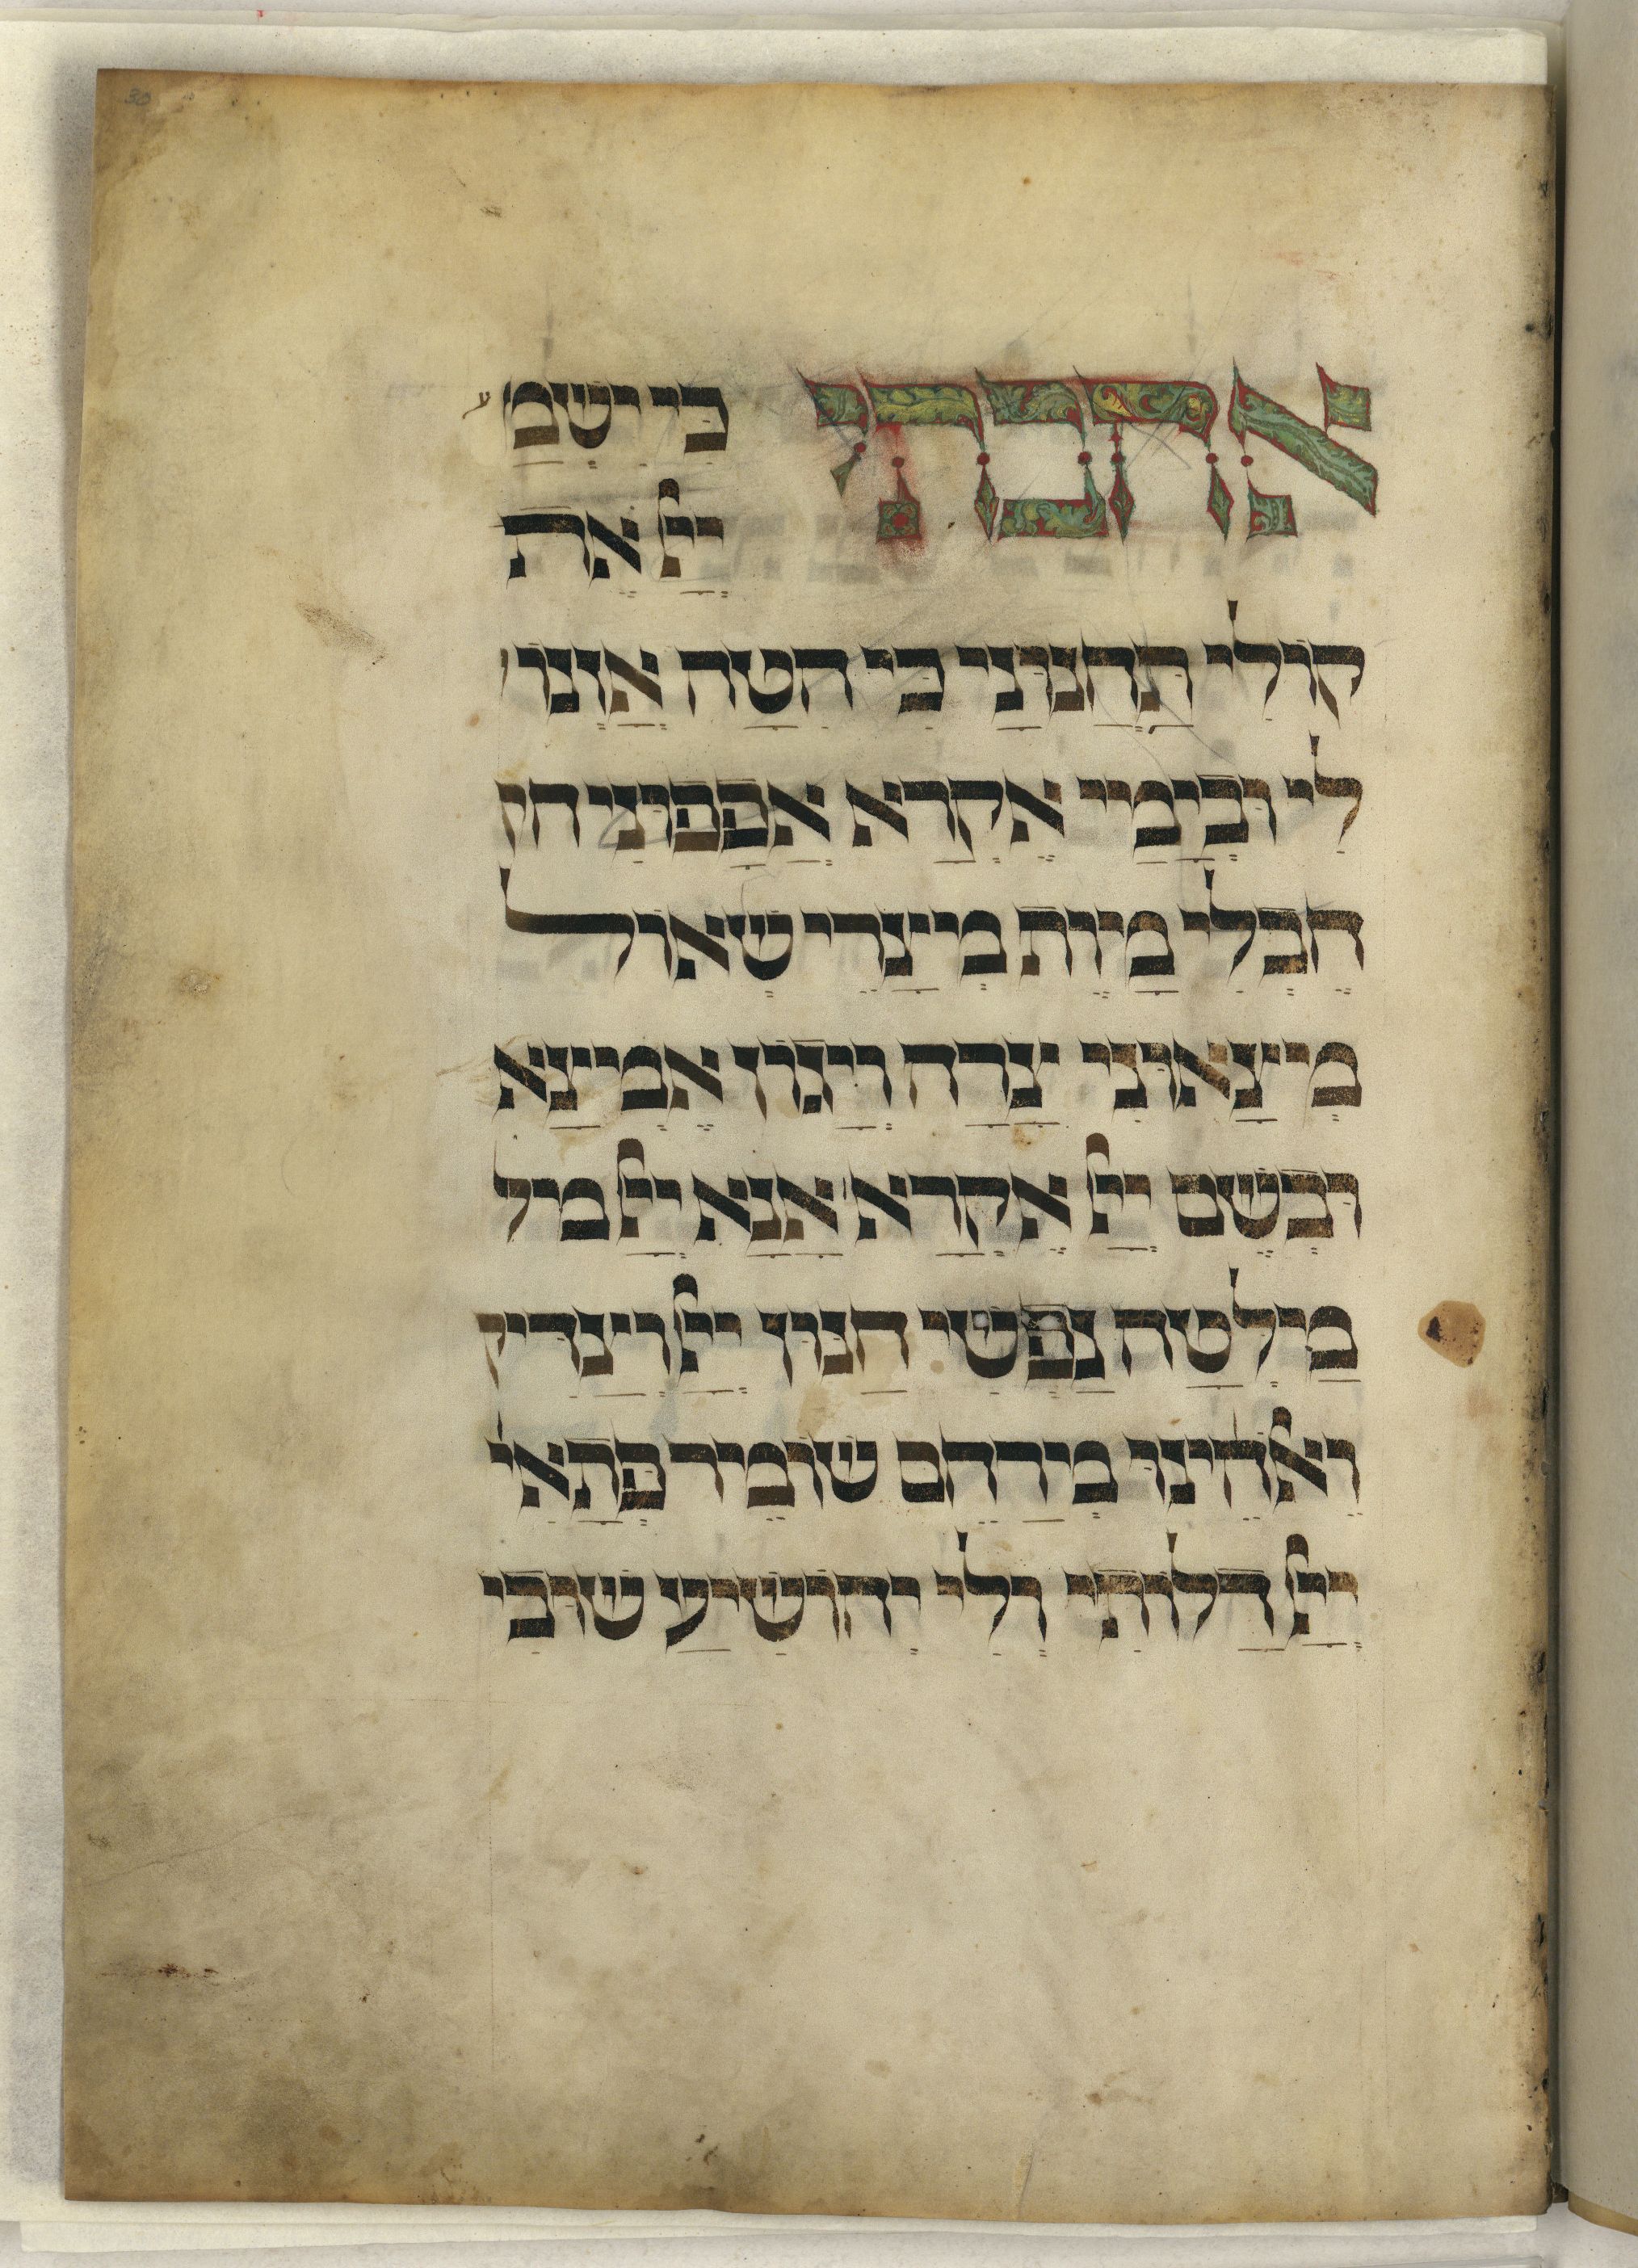 אהבתי כי ישמע
יי את
קולי תחנוני כי הטה אזנו
לי ובימיי אקרא אפפוני
חבלי מות מצרי שאול
מצאוני צרה ויגון אמצא
ובשם יי אקרא אנא יי מיל
מילטה נפשי חנון יי וצדיק
ואלהינו מירחם שומיר פתאי
יי דלותי ולי יהושיע שובי